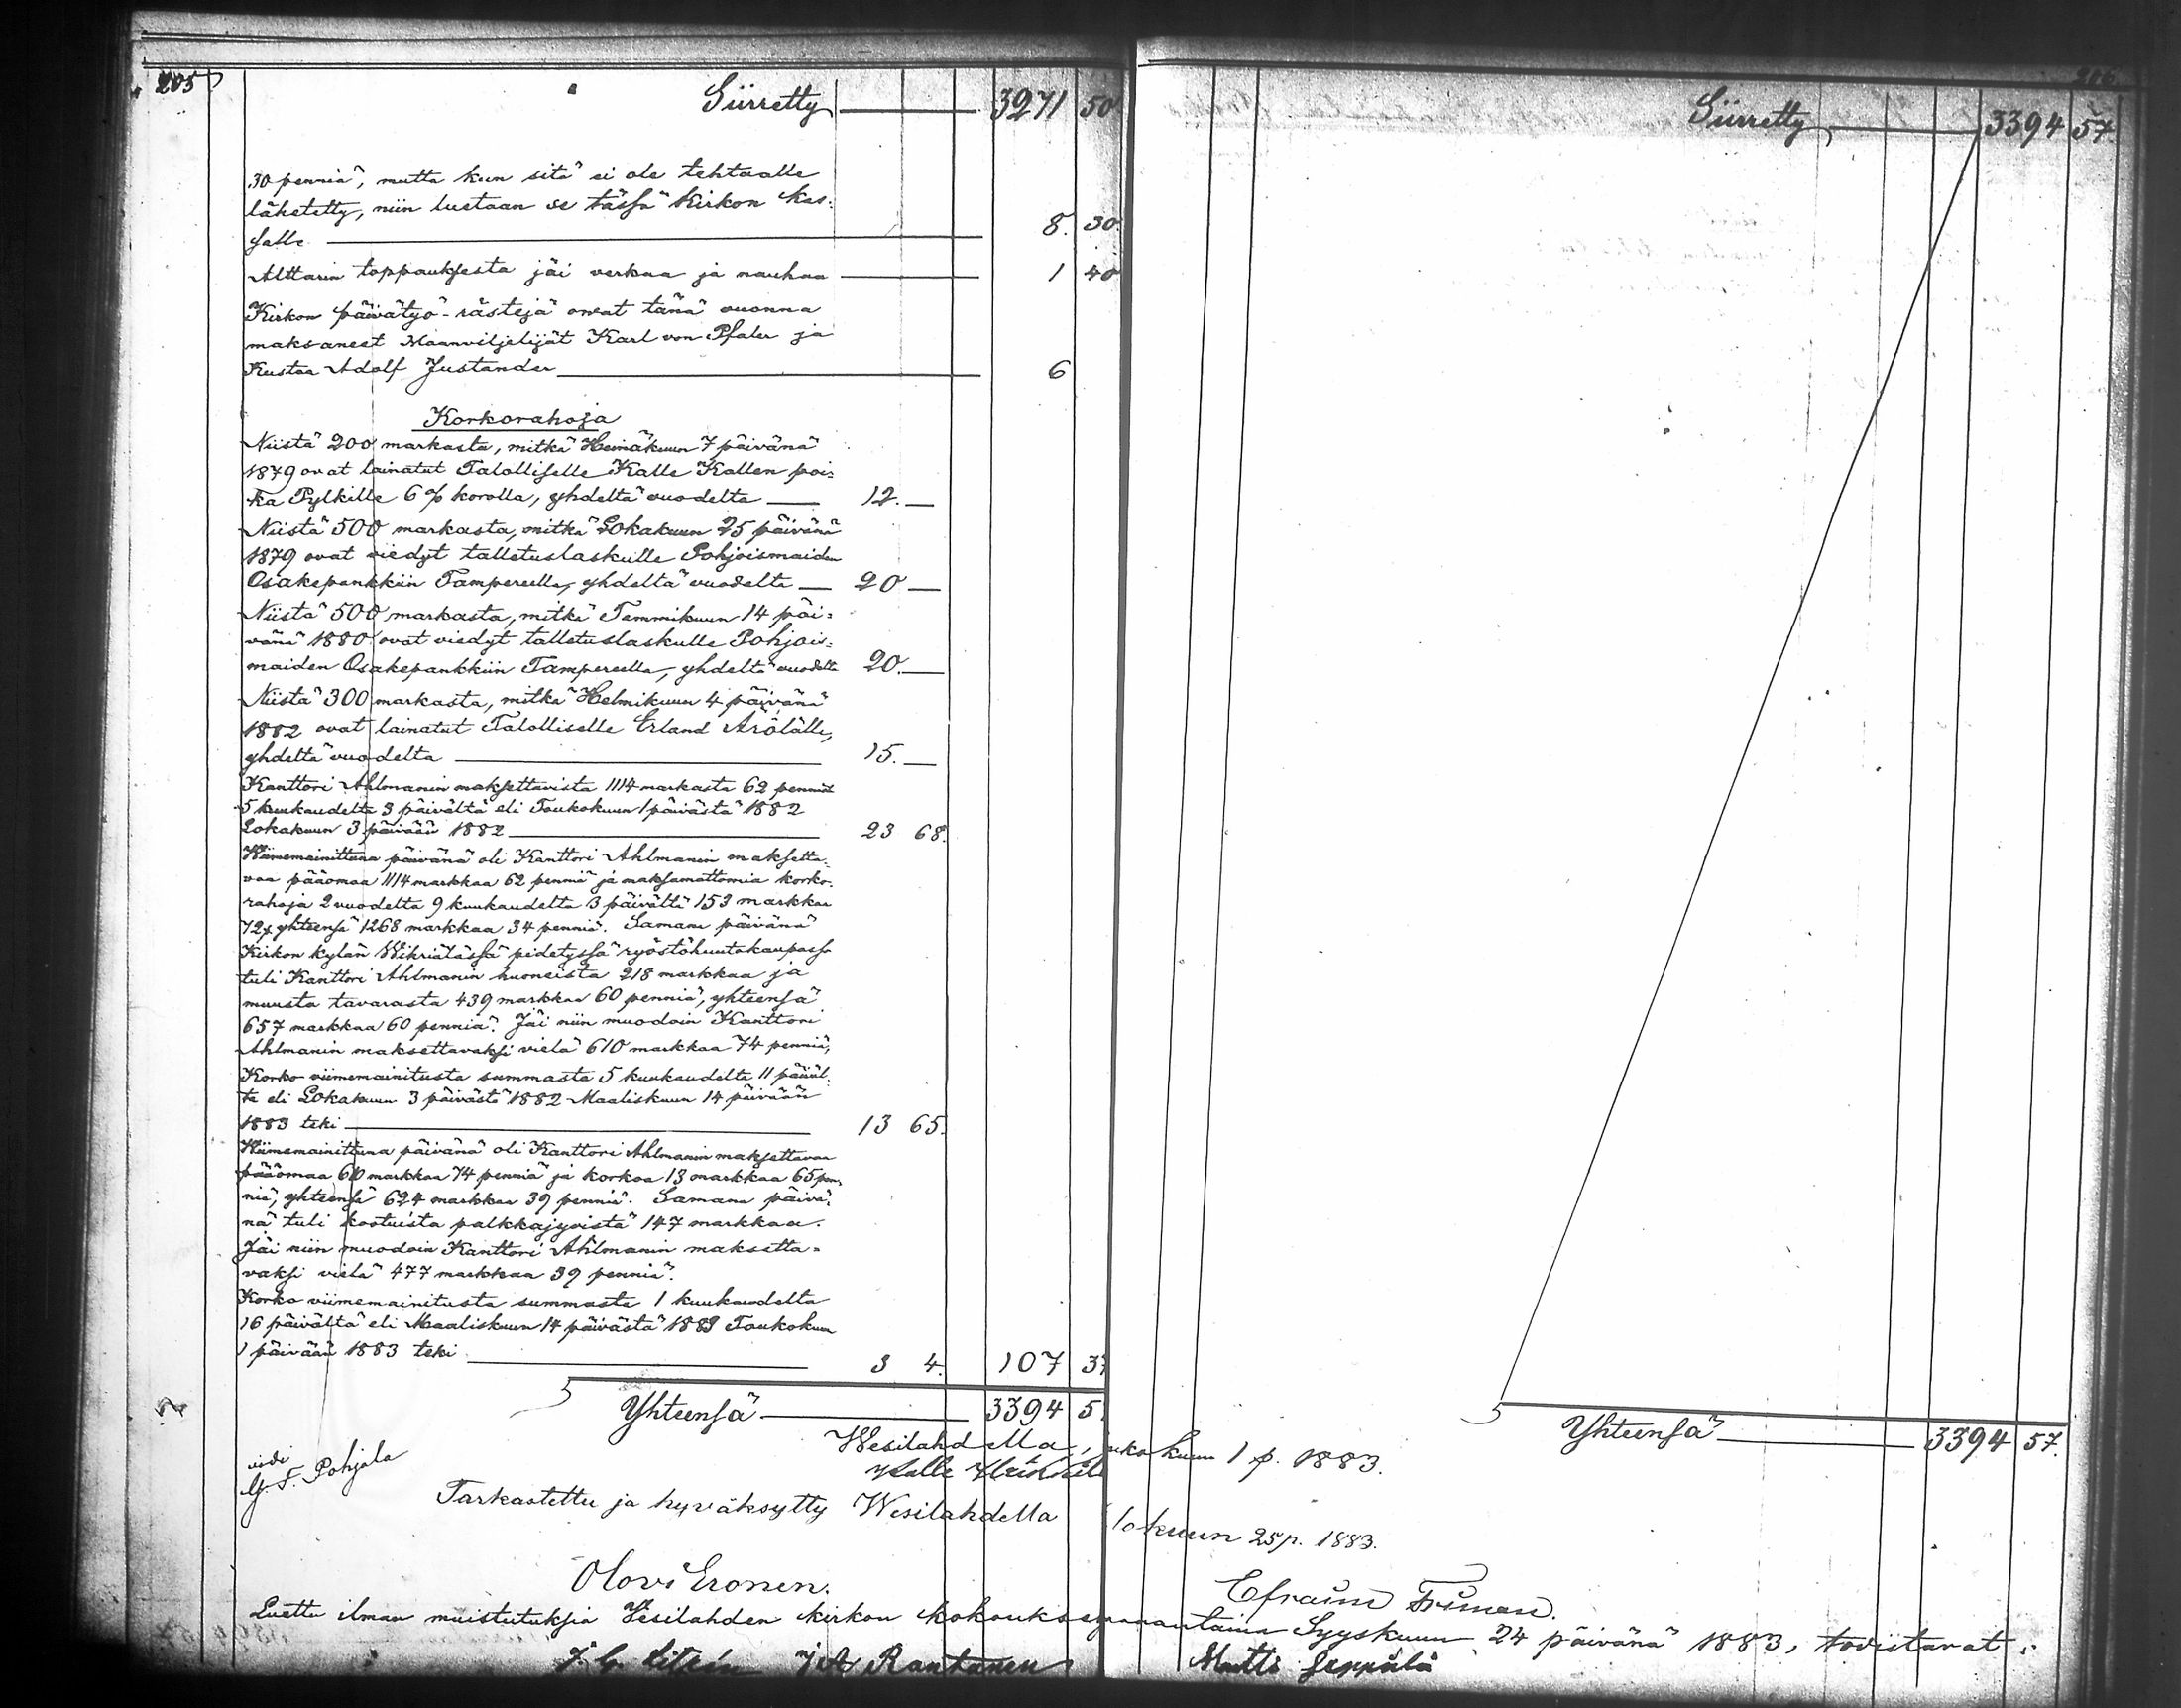 205
Siirretty 3271 50
30 penniä, mutta kun sitä ei ole tehtaalle
lähetetty, niin luetaan se tässä Kirkon kas=
salle 8. 30.
Alttarin toppauksesta jäi verkaa ja nauhaa 1 40
Kirkon päivätyö-rästejä owat tänä vuonna
maksaneet Maanviljelijät Karl von Pfaler ja
Kustaa Adolf Justander 6
Korkorahoja
Niistä 200 markasta, mitkä Heinäkuun 7 päivänä
1879 ovat lainatut Talolliselle Kalle Kallen poi=
ka Pylkille 6 % korolla, yhdeltä vuodelta 12. —
Niistä 500 markasta, mitkä Lokakuun 25 päivänä
1879 ovat viedyt talletuslaskulle Pohjoismaiden
Osakepankkiin Tampereella, yhdeltä vuodelta 20 —
Niistä 500 markasta, mitkä Tammikuun 14 päi=
vänä 1880 ovat viedyt talletuslaskulle Pohjois=
maiden Osakepankkiin Tampereella, yhdeltä vuodelta 20. —
Niistä 300 markasta, mitkä Helmikuun 4 päivänä
1882 ovat lainatut Talolliselle Erland Ärölälle,
yhdeltä vuodelta 15. —
Kanttori Ahlmanin maksettavista 1114 markasta 62 pennistä
5 kuukaudelta 3 päivältä eli Toukokuun 1 päivästä 1882
Lokakuun 3 päivään 1882 23 68.
Wiimemainittuna päivänä oli Kanttori Ahlmanin maksetta=
vaa pääomaa 1114 markkaa 62 penniä ja maksamattomia korko=
rahoja 2 vuodelta 9 kuukaudelta 3 päivältä 153 markkaa
72 p. yhteensä 1268 markkaa 34 penniä. Samana päivänä
Kirkon kylän Wihriälässä pidetyssä ryöstöhuutokaupassa
tuli Kanttori Ahlmanin huoneista 218 markkaa ja
muusta tavarasta 439 markkaa 60 penniä, yhteensä
657 markkaa 60 penniä. Jäi niin muodoin Kanttori
Ahlmanin maksettavaksi vielä 610 markkaa 74 penniä,
Korko viimemainitusta summasta 5 kuukaudelta 11 päiväl=
tä eli Lokakuun 3 päivästä 1882 Maaliskuun 14 päivään
1883 teki 13 65.
Wiimemainittuna päivänä oli Kanttori Ahlmanin maksettavaa
pääomaa 610 markkaa 74 penniä ja korkoa 13 markkaa 65 pen=
niä, yhteensä 624 markkaa 39 penniä. Samana päivä=
nä tuli kootuista palkkajyvistä 147 markkaa.
Jäi niin muodoin Kanttori Ahlmanin maksetta=
vaksi vielä 477 markkaa 39 penniä.
Korko viimemainitusta summasta 1 kuukaudelta
16 päivältä eli Maaliskuun 14 päivästä 1883 Toukokuun
1 päivään 1883 teki 3 4. 107 37
Yhteensä 3394 5
206
Siirretty 3394 57.
Yhteensä 3394 57.
Wesilahdella, ukokuun 1 p. 1883.
Kalle Heikkilä
vidi
G. F. Pohjala
Tarkastettu ja hyväksytty Wesilahdella lokuun 25 p. 1883.
Olovi Eronen. Efraim Friman.
Luettu ilman muistutuksia Vesilahden kirkon kokouksessa maanantaina Syyskuun 24 päivänä 1883, todistavat:
J. A. Rantanen Matti Seppälä